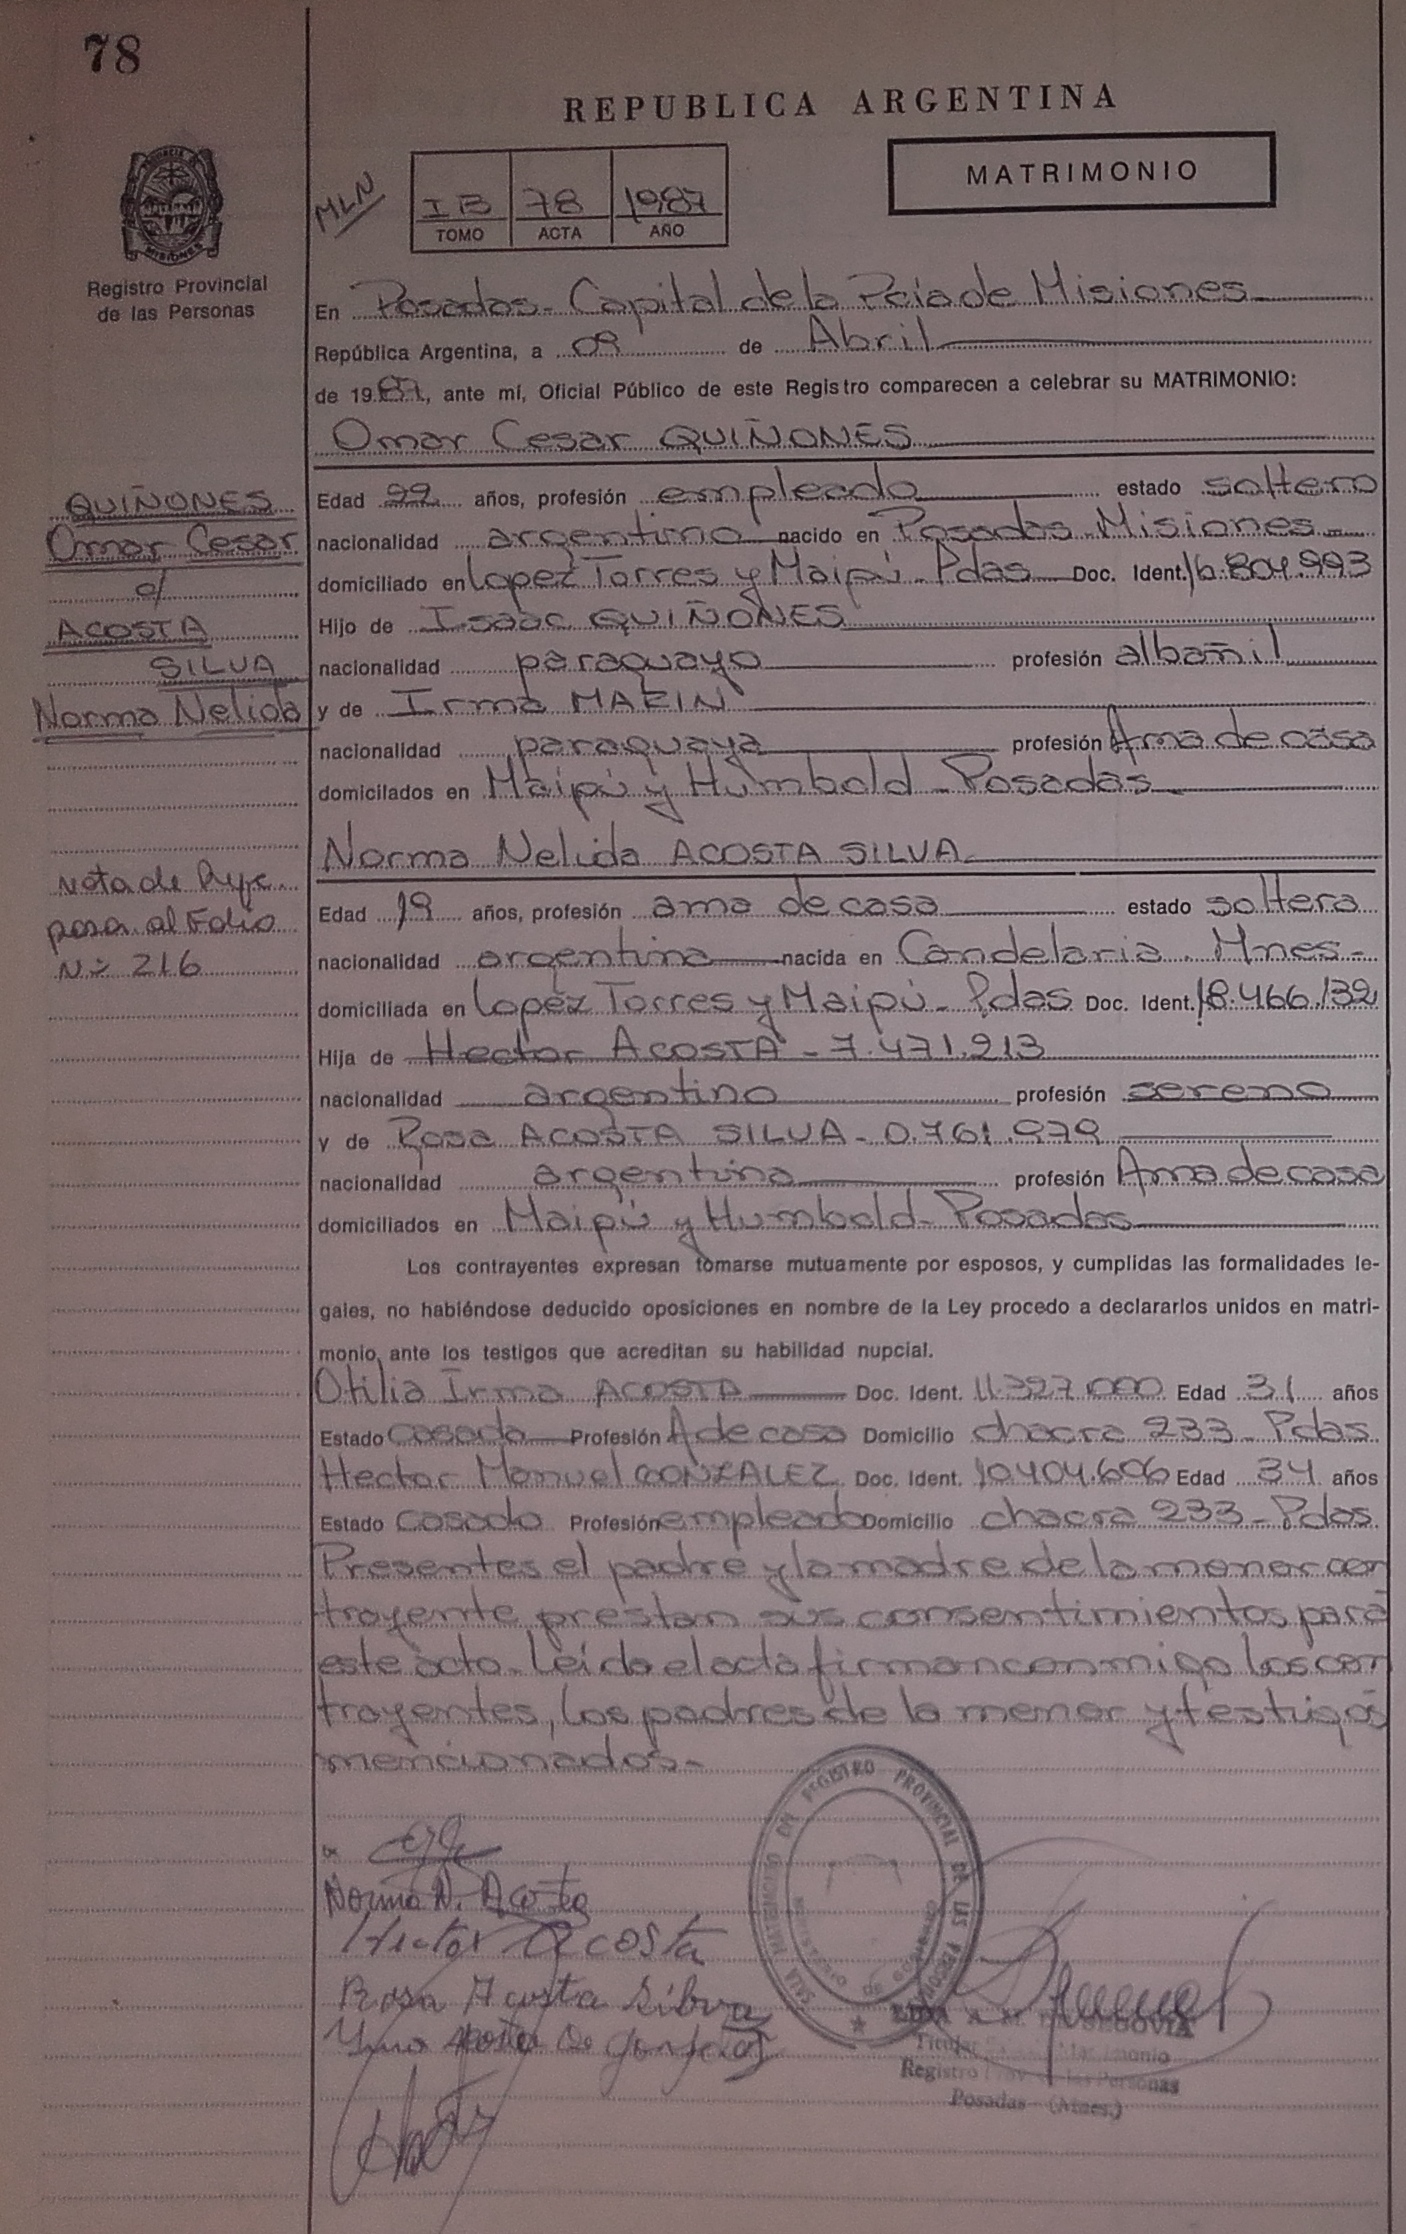 78
REPUBLICA ARGENTINA
MATRIMONIO
MLN
I B 78 1987
TOMO ACTA AÑO
PROVINCIA DE MISIONES
Registro Provincial
de las Personas
En Posadas - Capital de la Pcia de Misiones
República Argentina, a 09 de Abril
de 1987, ante mí, Oficial Público de este Registro comparecen a celebrar su MATRIMONIO:
Omar Cesar QUIÑONES
QUIÑONES
Omar Cesar
c/
ACOSTA
SILVA
Norma Nelida
Edad 22 años, profesión empleado estado soltero
nacionalidad argentino nacido en Posadas Misiones
domiciliado en Lopez Torres y Maipú - Pdas Doc. Ident. 16.804.993
Hijo de Isaac QUIÑONES
nacionalidad paraguayo profesión albañil
y de Irma MARIN
nacionalidad paraguaya profesión Ama de casa
domicilados en Maipú y Humbold - Posadas
Norma Nelida ACOSTA SILVA
Nota de Ref.
pasa al Folio
Nº 216
Edad 19 años, profesión ama de casa estado soltera
nacionalidad argentina nacida en Candelaria. Mnes-
domiciliada en Lopez Torres y Maipú - Pdas Doc. Ident. 18.466.132
Hija de Hector ACOSTA - 7.471.213
nacionalidad argentino profesión sereno
y de Rosa ACOSTA SILVA - 0.761.979
nacionalidad argentina profesión Ama de casa
domiciliados en Maipú y Humbold - Posadas
Los contrayentes expresan tomarse mutuamente por esposos, y cumplidas las formalidades le-
gales, no habiéndose deducido oposiciones en nombre de la Ley procedo a declararlos unidos en matri-
monio ante los testigos que acreditan su habilidad nupcial.
Otilia Irma ACOSTA Doc. Ident. 11.327.000 Edad 31 años
Estado casada Profesión A de casa Domicilio chacra 233 - Pdas.
Hector Manuel GONZALEZ Doc. Ident. 10.404.606 Edad 34 años
Estado Casado Profesión empleado Domicilio chacra 233 - Pdas.
Presentes el padre y la madre de la menor con
trayente prestan sus consentimientos para
este acto - Leido el acta firman conmigo los con
trayentes, los padres de la menor y testigos
mencionados -
Norma N. Acosta
Hector Acosta
Rosa Acosta Silva
SALA MATRIMONIO DEL REGISTRO PROVINCIAL DE LAS PERSONAS
A. M. DE SEGOVIA
Titular Matrimonio
Registro Prov. de las Personas
Posadas - (Mnes.)